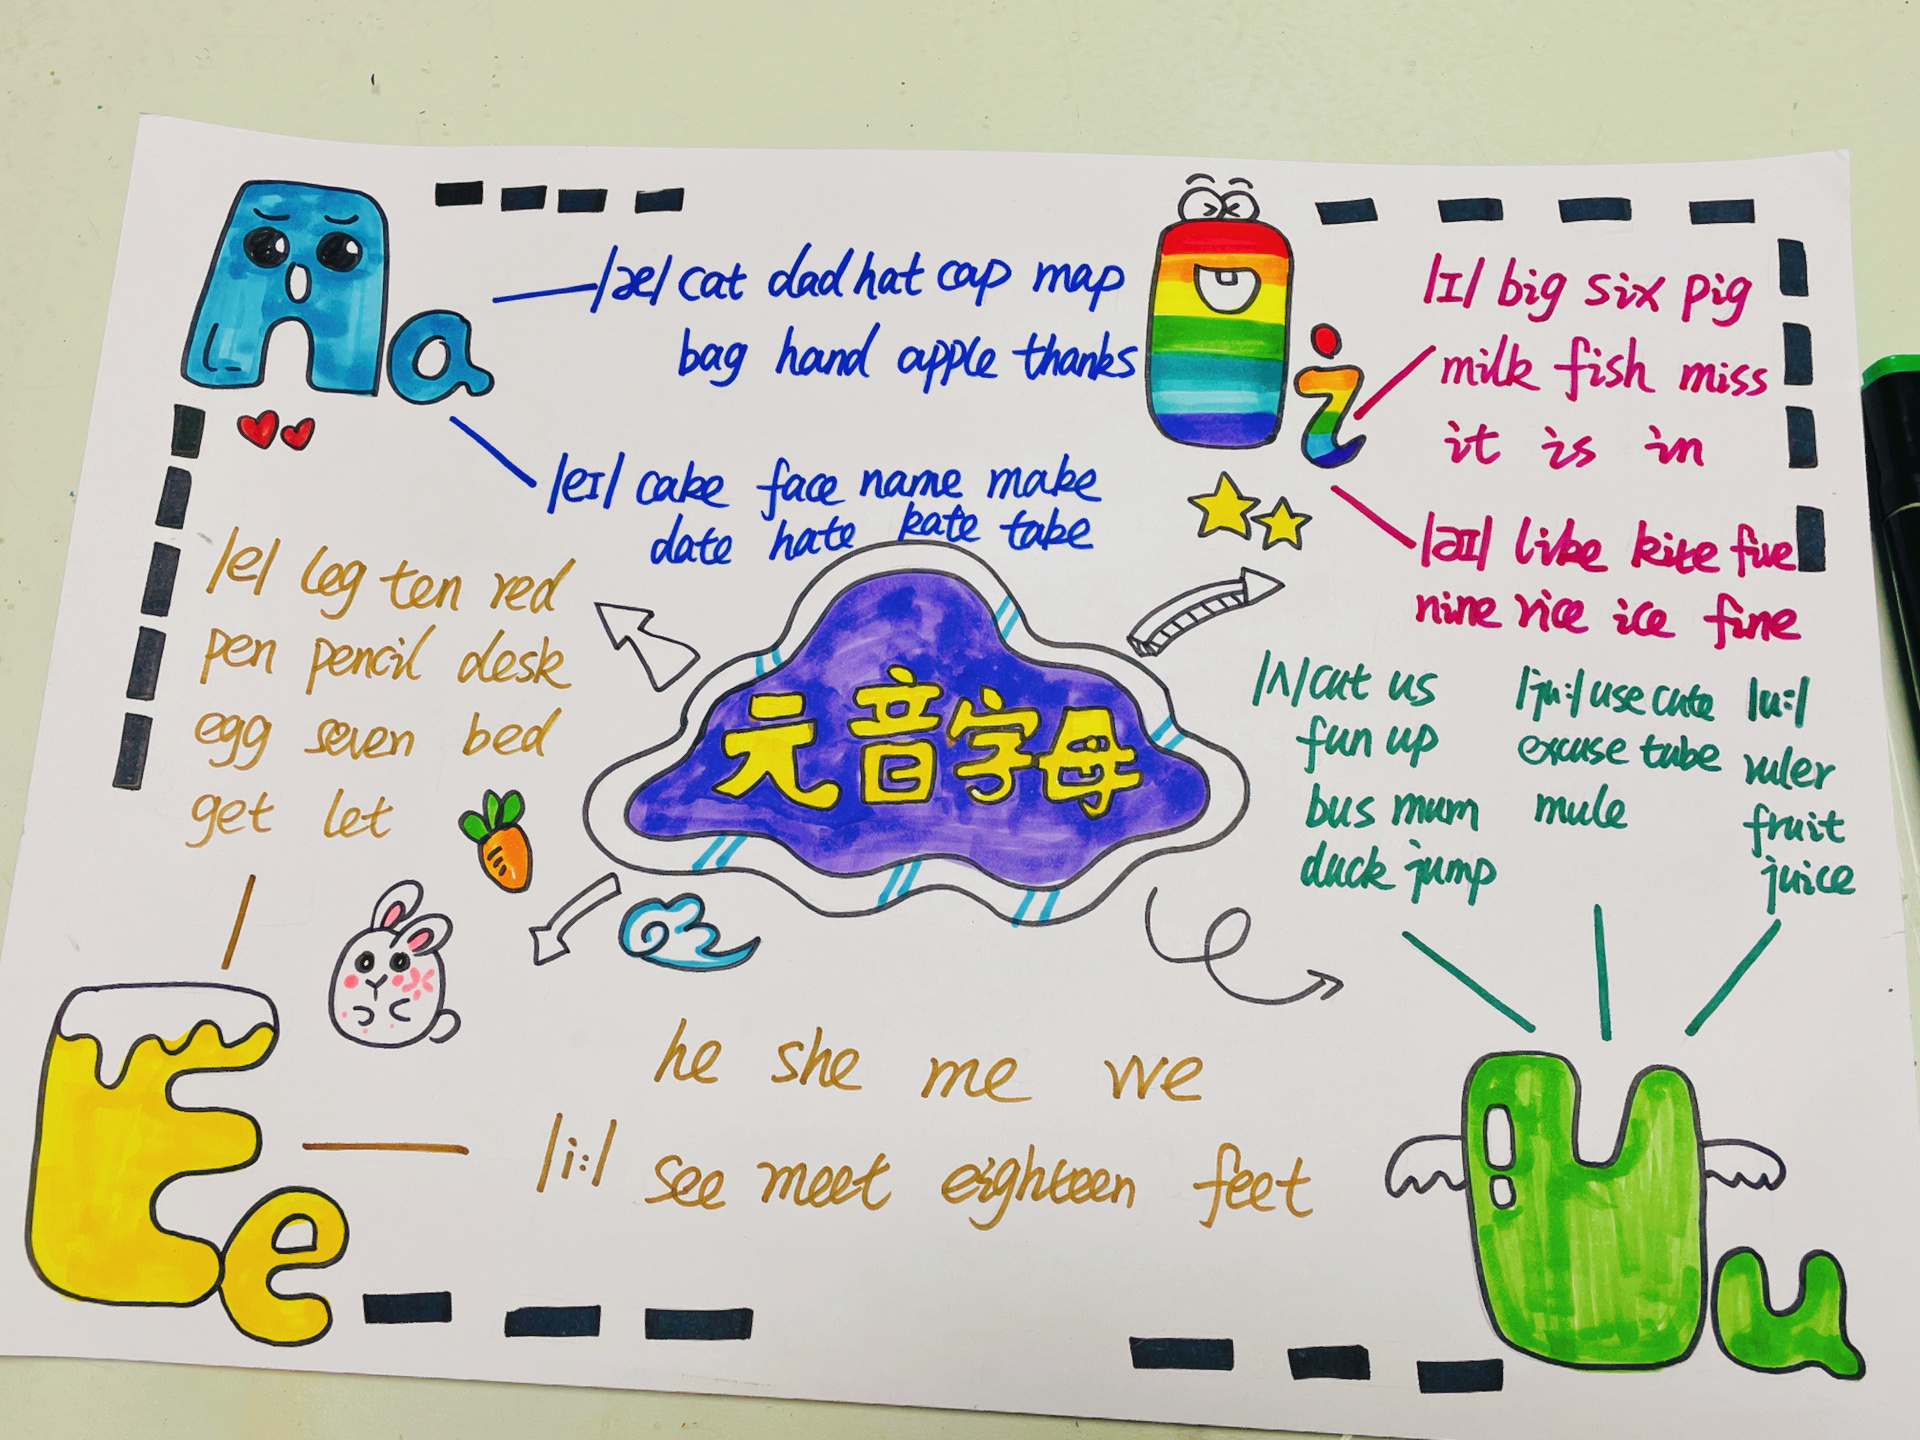 Aa
/æ/ cat dad hat cap map
bag hand apple thanks
/eɪ/ cake face name make
date hate kate take
I i
/ɪ/ big six pig
milk fish miss
it is in
/aɪ/ like kite five
nine rice ice fine
/e/ leg ten red
pen pencil desk
egg seven bed
get let
元音字母
/ʌ/ cut us
fun up
bus mum
duck jump
/ju:/ use cute
excuse tube
mule
/u:/
ruler
fruit
juice
Ee
he she me we
/i:/ see meet eighteen feet
Uu